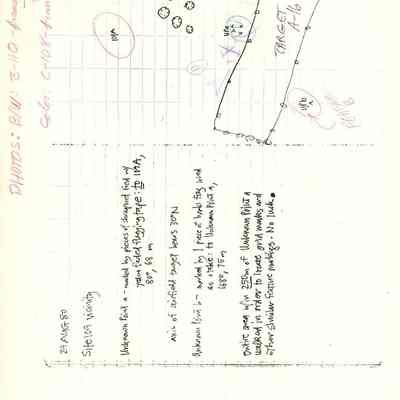 PHOTOS: B/W: 3-110-
Color: C-108-fram
109A
TARGET
A-16
29 AUG 80
Site 109 vicinity
Unknown Point a - marked by pieces of tied w/
faded flagging tape: to 109A,
80°, 68 m
axis of airfield target bears 30°N
Unknown Point b - marked by 1 piece of bomb frag used
as a stake: to Unknown Point a,
168°, 78 m
Entire area w/in 250m of Unknown Point a
walked in order to locate grid marks and
other similar feature markings. No luck.